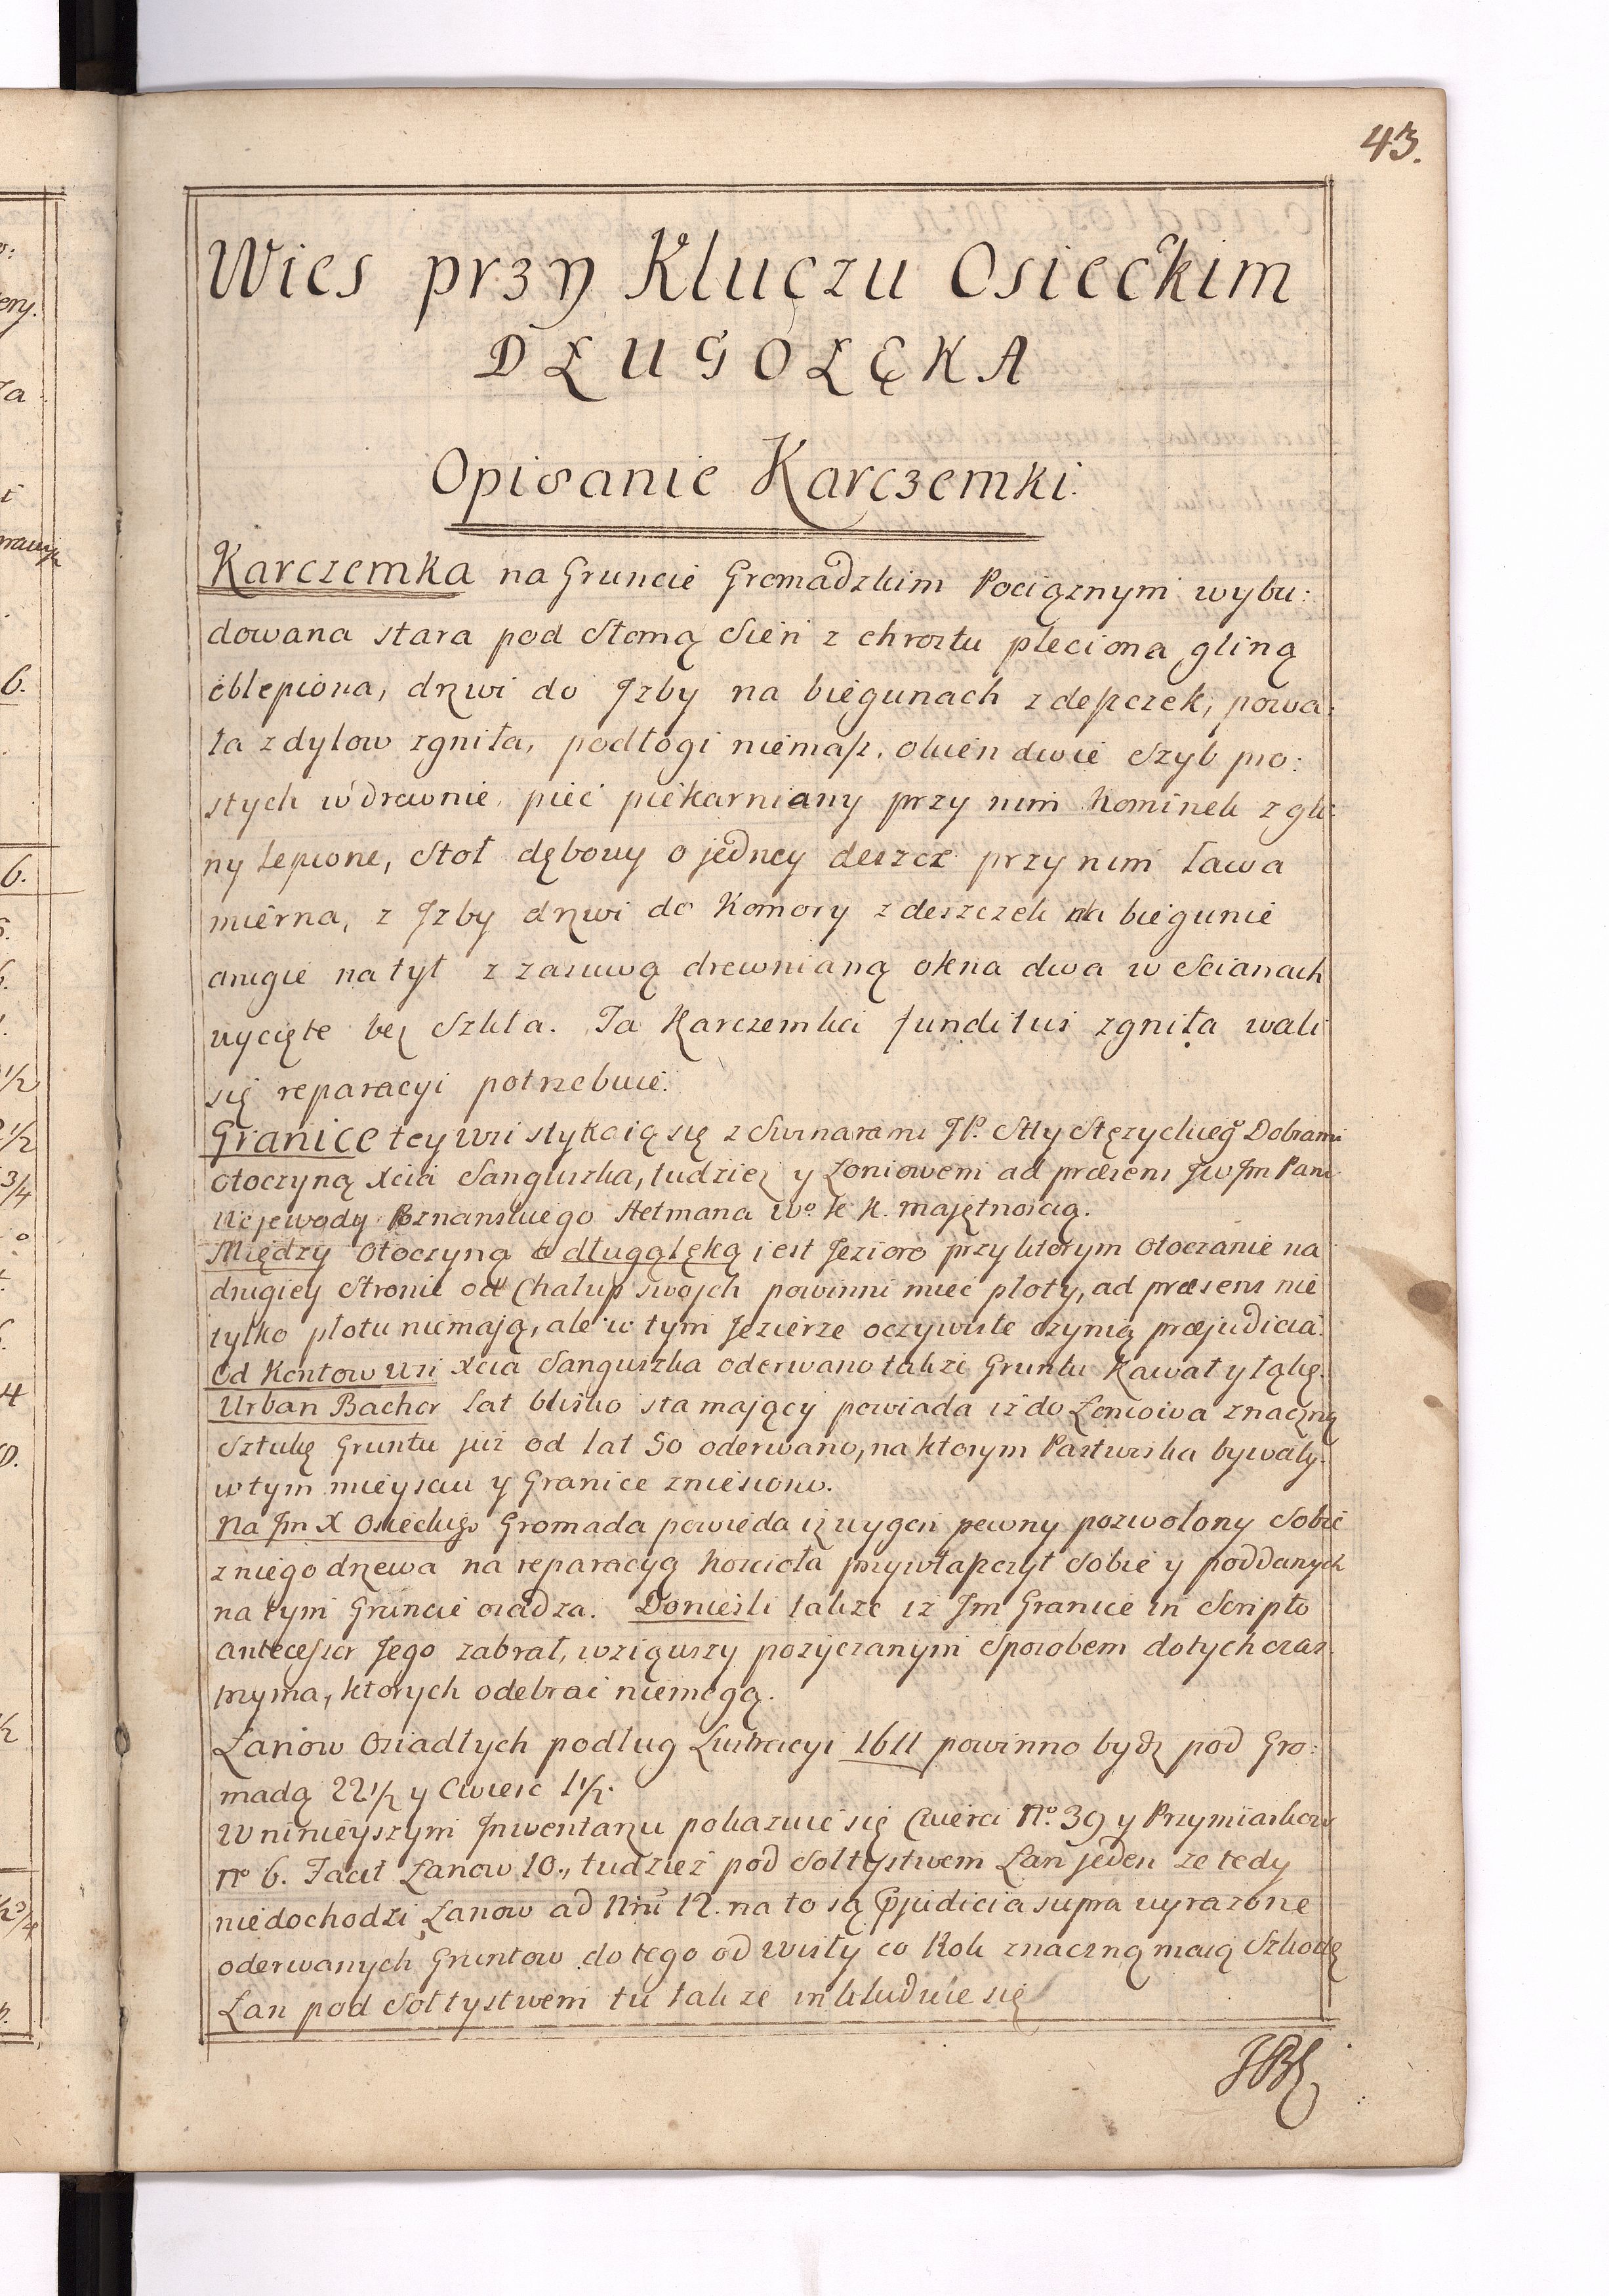 43.
Wies przy Kluczu Osieckim
DŁUGOŁĘKA
Opisanie Karczemki.
Karczemka na Gruncie Gromadzkim Pociąznym wybu:
dowana stara pod Słomą Sień z chrostu pleciona gliną
oblepiona, drzwi do Jzby na biegunach z deszczek, powa:
ła z dylow zgniła, podłogi niemasz, okien dwie Szyb pro:
stych w drewnie, piec piekarniany przy nim kominek z gli:
ny lepione, Stoł dębowy o jedney deszcz przy nim Ława
mierna, z Jzby drzwi do Komory z deszczek na biegunie
drugie na tył z zasuwą drewnianą okna dwa w Scianach
wycięte bez Szkła. Ta Karczemka funditus zgniła wali
się reparacyi potrzebuie.
Granice tey wsi stykaią się z Swinarami JP. Stty Stęzyckieg Dobrami
otoczyną Xcia Sanguszka, tudziez y Łoniowem ad præsens Jw Jm Pana
Wojewody Poznanskiego Hetmana Wo. K. majętnoscią.
Między Otoczyną a długąłęką iest Jezioro przy ktorym Otoczanie na
drugiey Stronie od Chałup swojch powinni miec płoty, ad præsens nie
tylko płotu niemają, ale w tym Jezierze oczywiste czynią præjudicia.
Od Kontow Wsi Xcia Sanguszka oderwano takze Gruntu Kawał y łąkę.
Urban Bachor Lat blisko sta mający powiada iz do Łoniowa znaczną
Sztukę Gruntu juz od lat 50 oderwano, na ktorym Pastwiska bywały.
w tym mieyscu y Granice zniesiono.
Na Jm X Osieckigo Gromada powieda iz wygon pewny pozwolony Sobie
z niego drzewa na reparacyą koscioła przywłaszczył Sobie y poddanych
na tym Gruncie osadza. Doniesli takze iz Jm Granice in Scripto
antecessor Jego zabrał, wziąwszy pozyczanym Sposobem dotychczas
trzyma, ktorych odebrac niemogą.
Łanow Osiadłych podług Lustracyi 1611 powinno bydz pod Gro:
madą 22 1/2 y Cwierc 1 1/2.
W ninieyszym Jnwentarzu pokazuie się Cwierci No. 39 y Przymiarkow
No 6. Facit Łanow 10., tudziez pod Sołtystwem Łan jeden ze tedy
niedochodzi Łanow ad Nrū 12. na to są pjudicia supra wyrazone
oderwanych Gruntow do tego od wisły co Rok znaczną maią Szkodę
Łan pod Sołtystwem tu takze inkluduie się